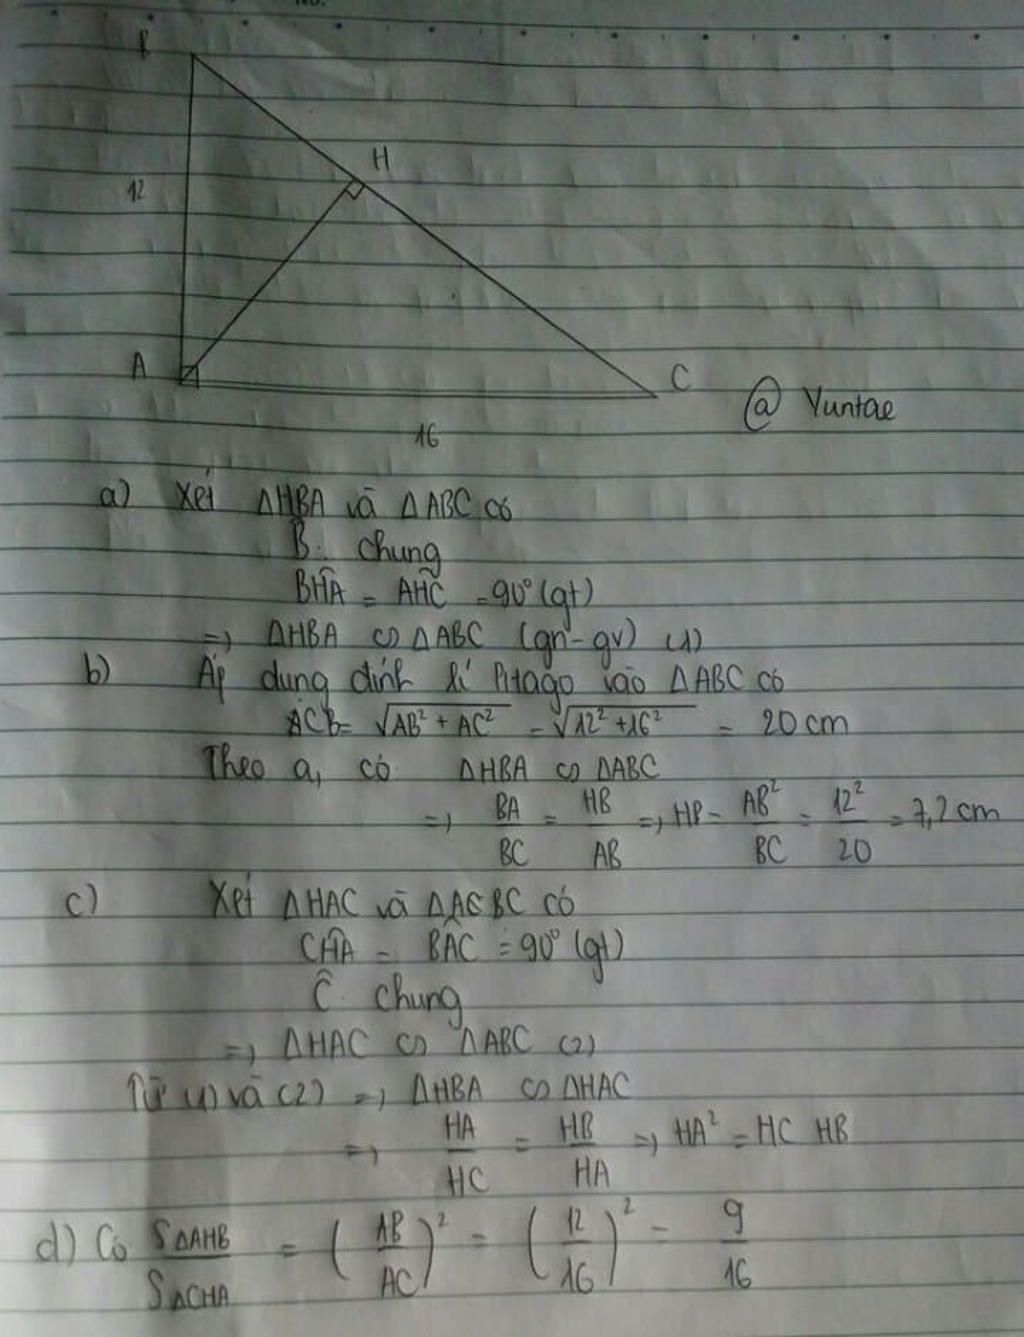 B
H
12
A
C
@ Yuntae
16
a) Xét ΔHBA và ΔABC có
B: chung
BĤA = AĤC = 90° (gt)
=> ΔHBA ∽ ΔABC (gn-gv) (1)
b) Áp dụng định lí Pitago vào ΔABC có
CB = √(AB² + AC²) = √(12² + 16²) = 20 cm
Theo a, có ΔHBA ∽ ΔABC
=> BA/BC = HB/AB => HB = AB²/BC = 12²/20 = 7,2 cm
c) Xét ΔHAC và ΔABC có
CĤA = BÂC = 90° (gt)
Ĉ chung
=> ΔHAC ∽ ΔABC (2)
Từ (1) và (2) => ΔHBA ∽ ΔHAC
=> HA/HC = HB/HA => HA² = HC HB
d) Có SΔAHB/SΔCHA = (AB/AC)² = (12/16)² = 9/16